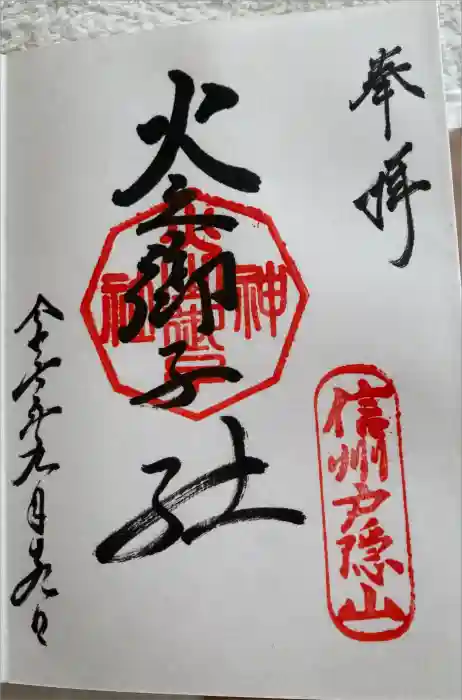 奉拝
信州戸隠山
火之御子社
神
社
令和六年九月